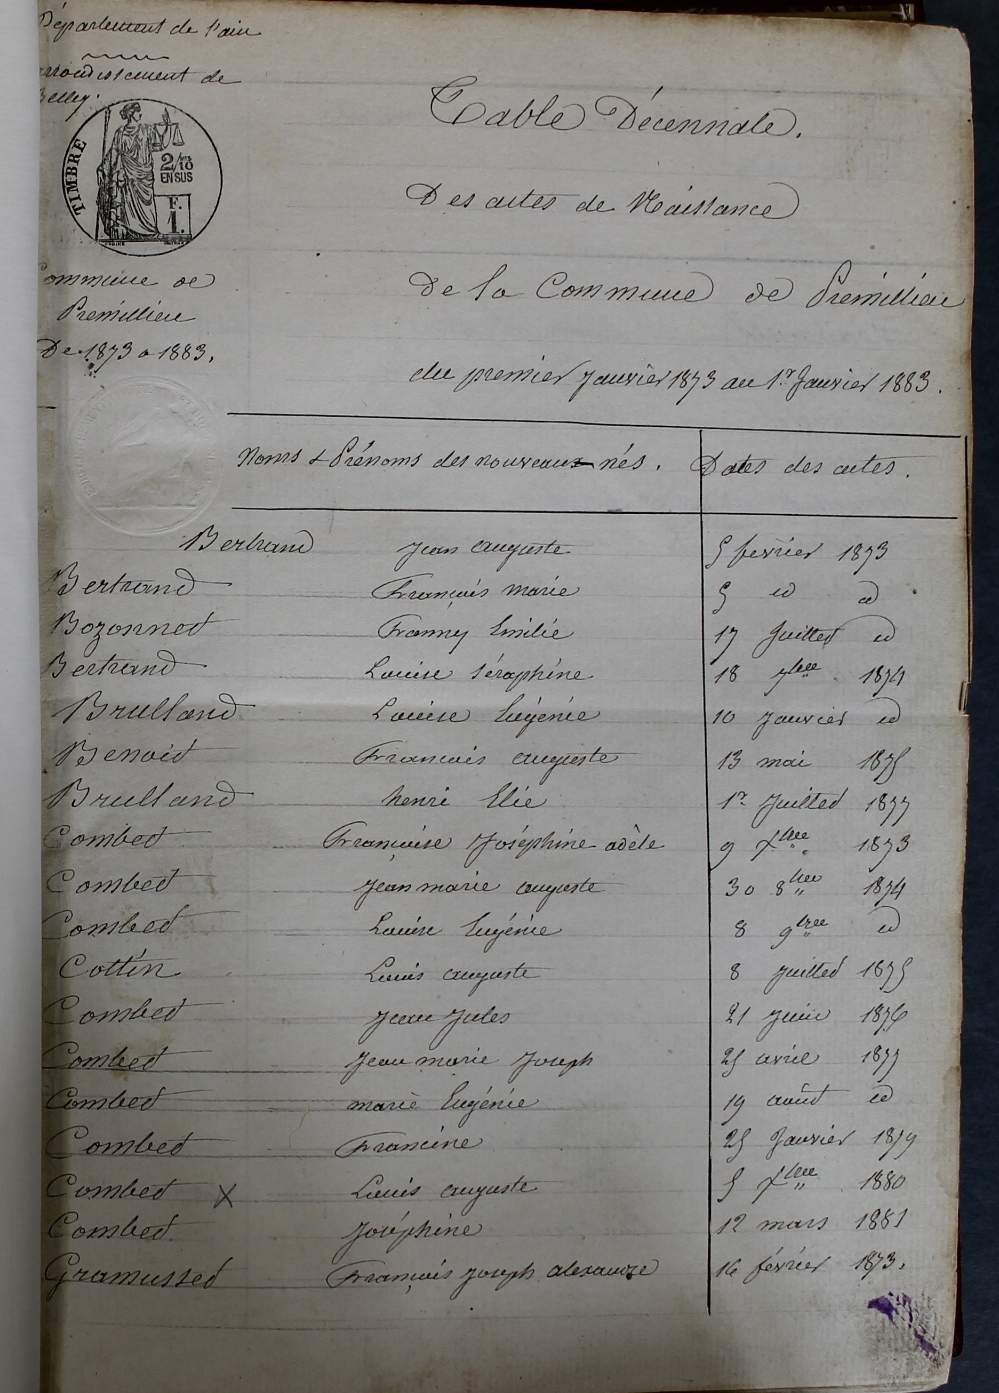 Département de l'ain
arrondissement de
Belley.
TIMBRE
2/10
EN SUS
F.
1.
Commune de
Prémillieu
De 1873 a 1883.
Table Décennale.
Des actes de Naissance
de la Commune de Prémillieu
du premier Janvier 1873 au 1er Janvier 1883.
Noms & Prénoms des nouveaux nés. Dates des actes.
Bertrand Jean auguste 5 février 1873
Bertrand François marie 5 id id
Bozonnet Franny Emilie 17 Juillet id
Bertrand Louise Séraphine 18 7bre 1874
Brulland Louise Eugénie 10 Janvier id
Benoit Francois auguste 13 mai 1875
Brulland henri Elie 1er Juillet 1877
Combet Françoise Joséphine adèle 9 Xbre 1873
Combet Jean marie auguste 30 8bre 1874
Combet Louise Eugénie 8 9bre id
Cottin Louis auguste 8 Juillet 1875
Combet Jean Jules 21 Juin 1876
Combet Jean marie Joseph 25 avril 1877
Combet marie Eugénie 19 août id
Combet Francine 25 Janvier 1879
Combet X Louis auguste 5 Xbre 1880
Combet Joséphine 12 mars 1881
Gramusset François Joseph alexandre 16 février 1873.